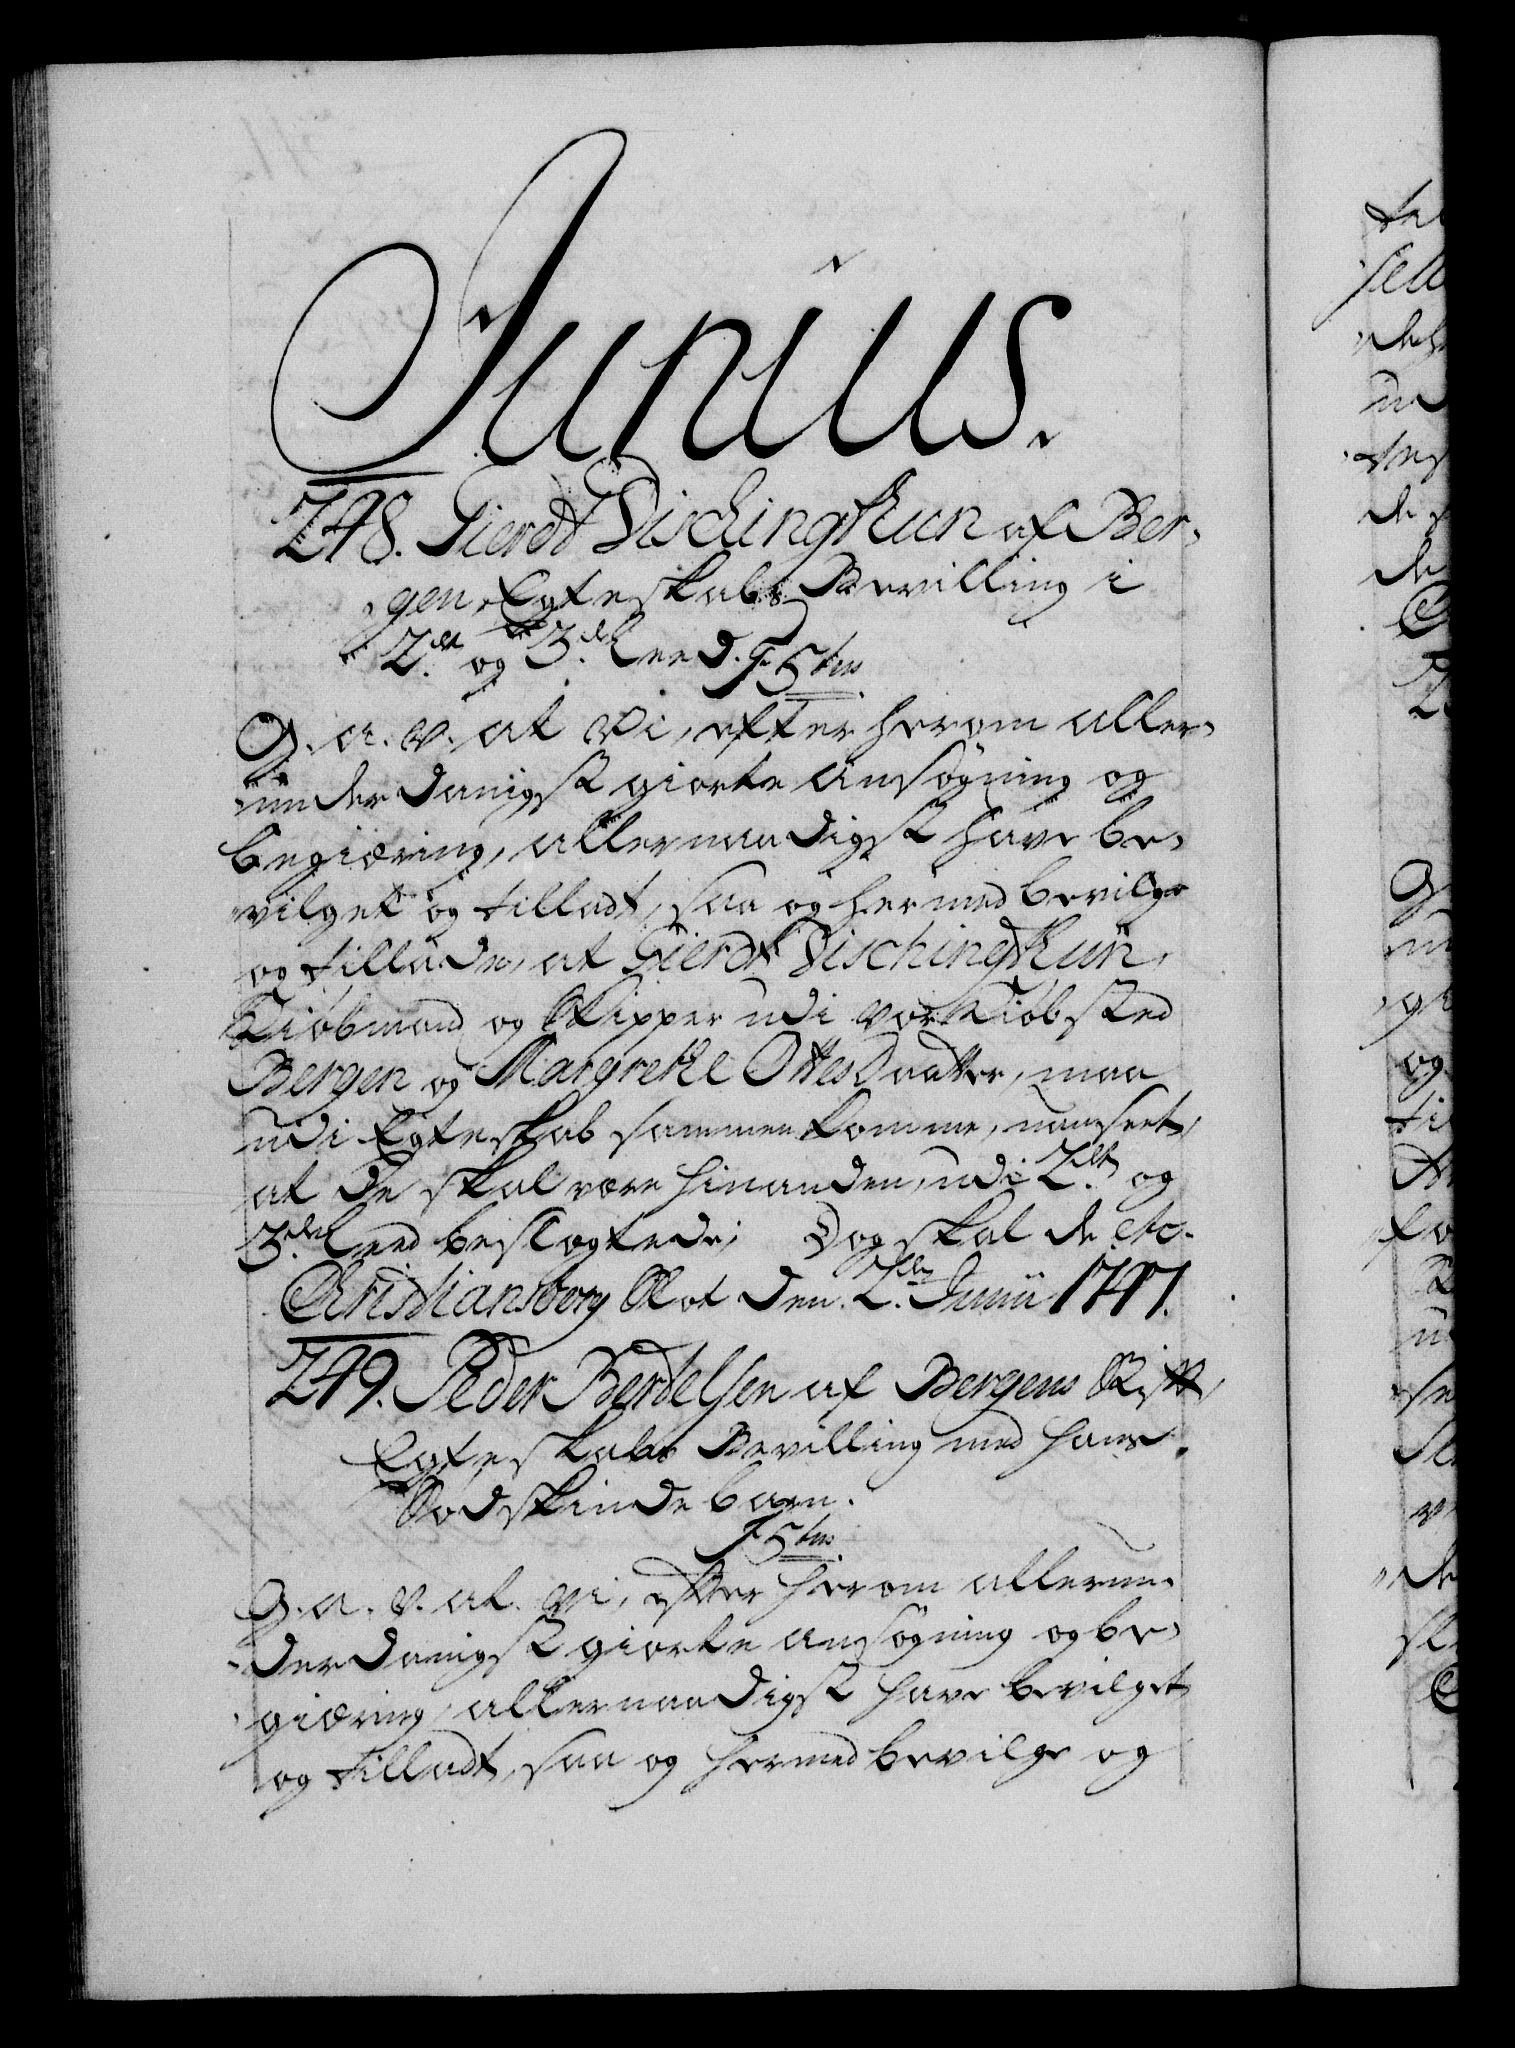 Junius.
248. Gierdt DischingKun af Ber-
gen, Egteskabs Bevilling i
2det og 3die Leed. F 5 
G. a. v. at Vi, efter herom aller-
underdanigst giorte ansögning og
begiæring, allernaadigst have be-
vilget og tilladt, saa og hermed bevilge
og tillade, at Gierdt DischingKun,
Kiøbmand og Skipper udi vor Kiøbsted
Bergen og Margrethe OttesDaatter, maa
udi Egteskab sammenkomme, uanseet,
at De skal være hinanden, udi 2det og
3die Leed beslægtede; Dog skal de etc.
Christiansborg Slot den 2den Junii 1747.
249. Peder Berdelsen af Bergens Stift,
Egteskabs Bevilling med hans
Sødskindebarn.
F 5
G. a. v. at Vi, efter herom allerun-
derdanigst giorte ansögning og be-
giæring, allernaadigst have bevilget
og tilladt, saa og hermed bevilge og